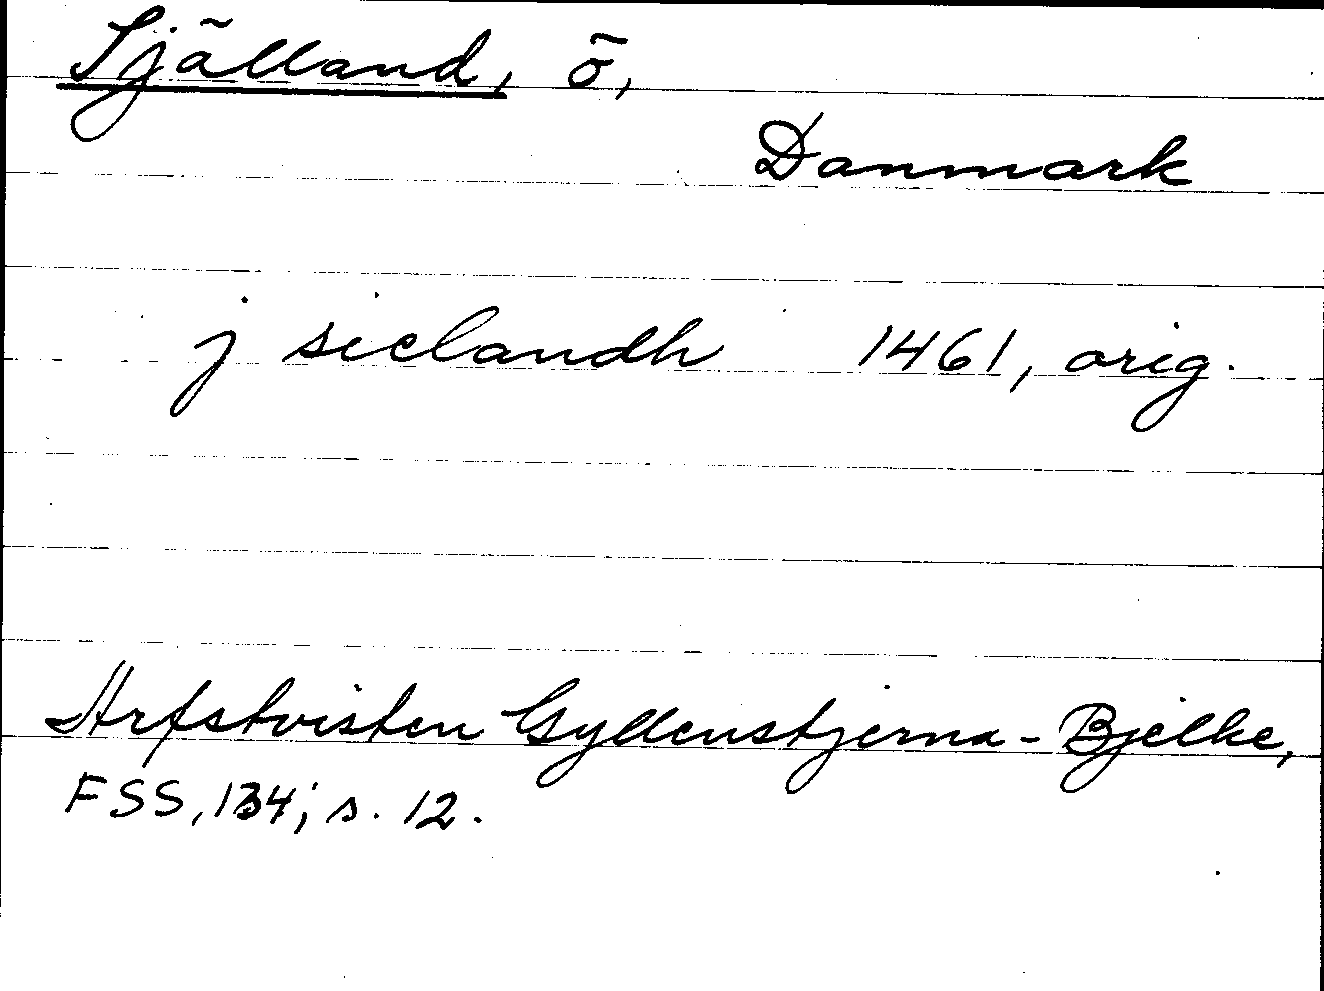 Själland, ö,
Danmark
j sielandh 1461, orig.
Arfstvisten Gyllenstjerna-Bjelke,
FSS, 134; s. 12.